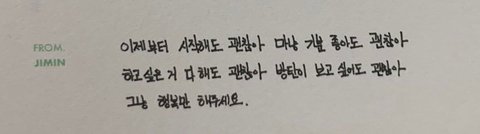 FROM.
JIMIN
이제부터 시작해도 괜찮아 마냥 기분 좋아도 괜찮아
하고싶은 거 다 해도 괜찮아 방탄이 보고 싶어도 괜찮아
그냥 행복만 해주세요.